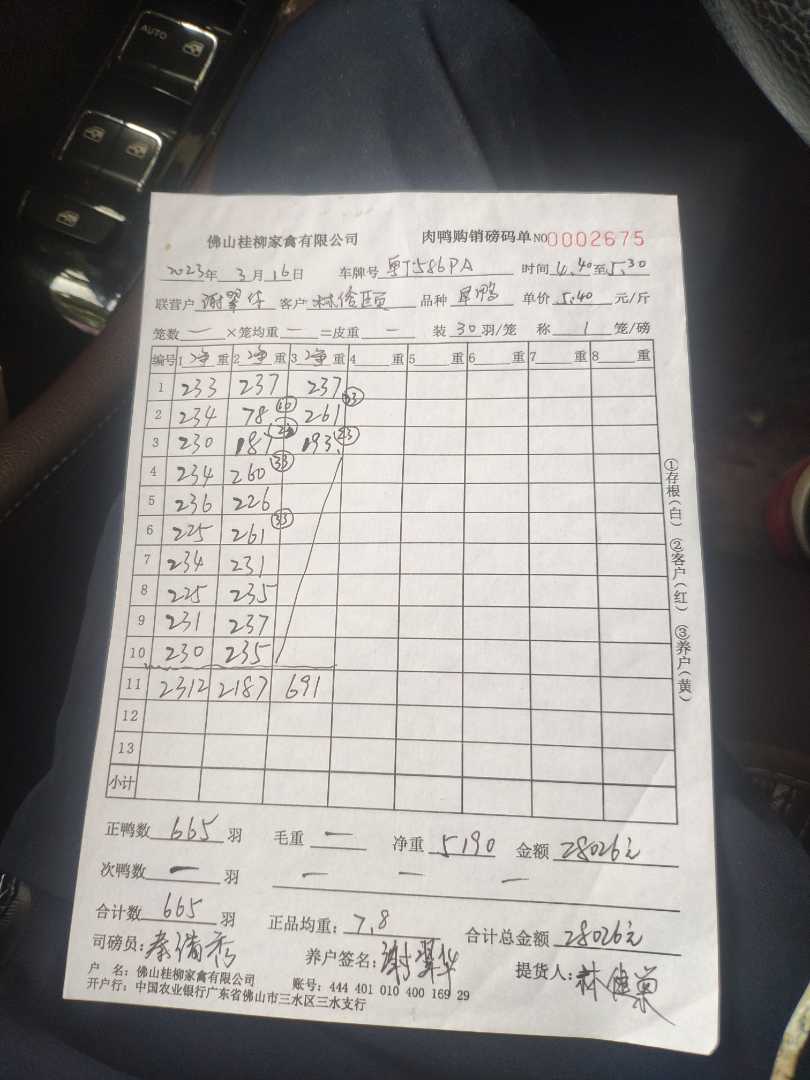 AUTO
佛山桂柳家禽有限公司 肉鸭购销磅码单 NO 0002675
2023年 3月16日 车牌号 粤J586PA 时间 4.40至5.30
联营户 谢翠华 客户 品种 旱鸭 单价 5.40 元/斤
笼数 一 ×笼均重 一 =皮重 一 装 30 羽/笼 称 1 笼/磅
编号 1 净 重 2 净 重 3 净 重 4 重 5 重 6 重 7 重 8 重
1 233 237 237
2 234 78 ⑩ 261 ㉝
3 230 187 193 ㉓
4 234 260 ㉝
5 236 226
6 225 261 ㉝
7 234 231
8 225 235
9 231 237
10 230 235
11 2312 2187 691
12
13
小计
正鸭数 665 羽 毛重 一 净重 5190 金额 28026元
次鸭数 一 羽 一 一 一
合计数 665 羽 正品均重: 7.8 合计总金额 28026元
司磅员: 养户签名: 谢翠华 提货人:
户 名: 佛山桂柳家禽有限公司 账号: 444 401 010 400 169 29
开户行: 中国农业银行广东省佛山市三水区三水支行
①存根(白) ②客户(红) ③养户(黄)